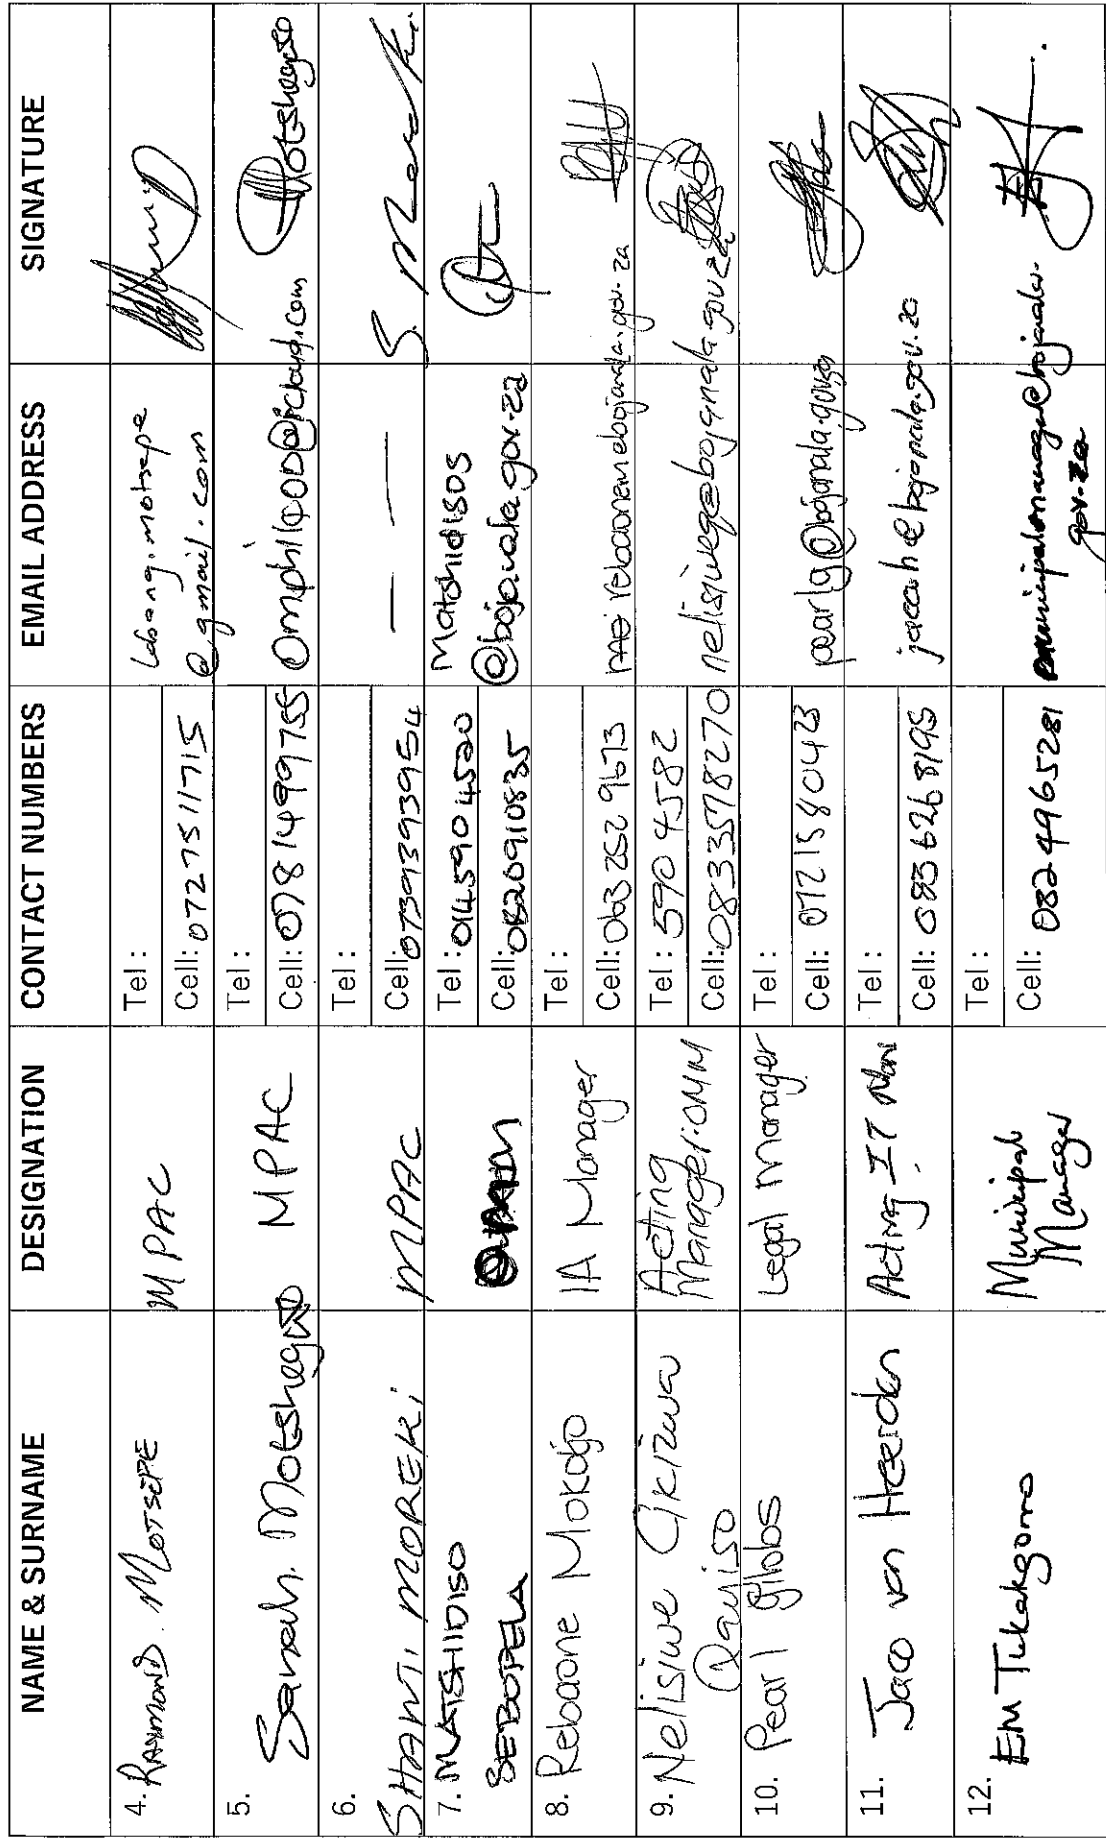 NAME & SURNAME DESIGNATION CONTACT NUMBERS EMAIL ADDRESS SIGNATURE
4. RAYMOND. MOTSEPE MPAC Tel : lebong.motsepe
Cell: 0727511715 @gmail.com
5. Sarah. Motshegoo MPAC Tel :
Cell: 0781499755 Omphil00@icloud.com Motshegoo
6. SHANTI MOREKI MPAC Tel :
Cell: 0739393954 — — — S. Moreki
7. MATSHIDISO Tel : 0145904520 Matshidisos
SEBOPELA Cell: 0820910835 @bojanala.gov.za
8. Rebaone Mokojo IA Manager Tel :
Cell: 063 252 9673 rebaonem@bojanala.gov.za
9. Nelisiwe Cikizwa Acting Tel : 590 4582
Qauiso Manager: OMM Cell: 0833578270 nelisiweq@bojanala.gov.za
10. Pearl Legal Manager Tel :
Cell: 0721580423 pearlg@bojanala.gov.za
11. Jaco van Heerden Acting IT Man Tel :
Cell: 0836268195 jacovh@bojanala.gov.za
12. EM Tukakgomo Municipal Manager Tel :
Cell: 0824965281 municipalmanager@bojanala.
gov.za